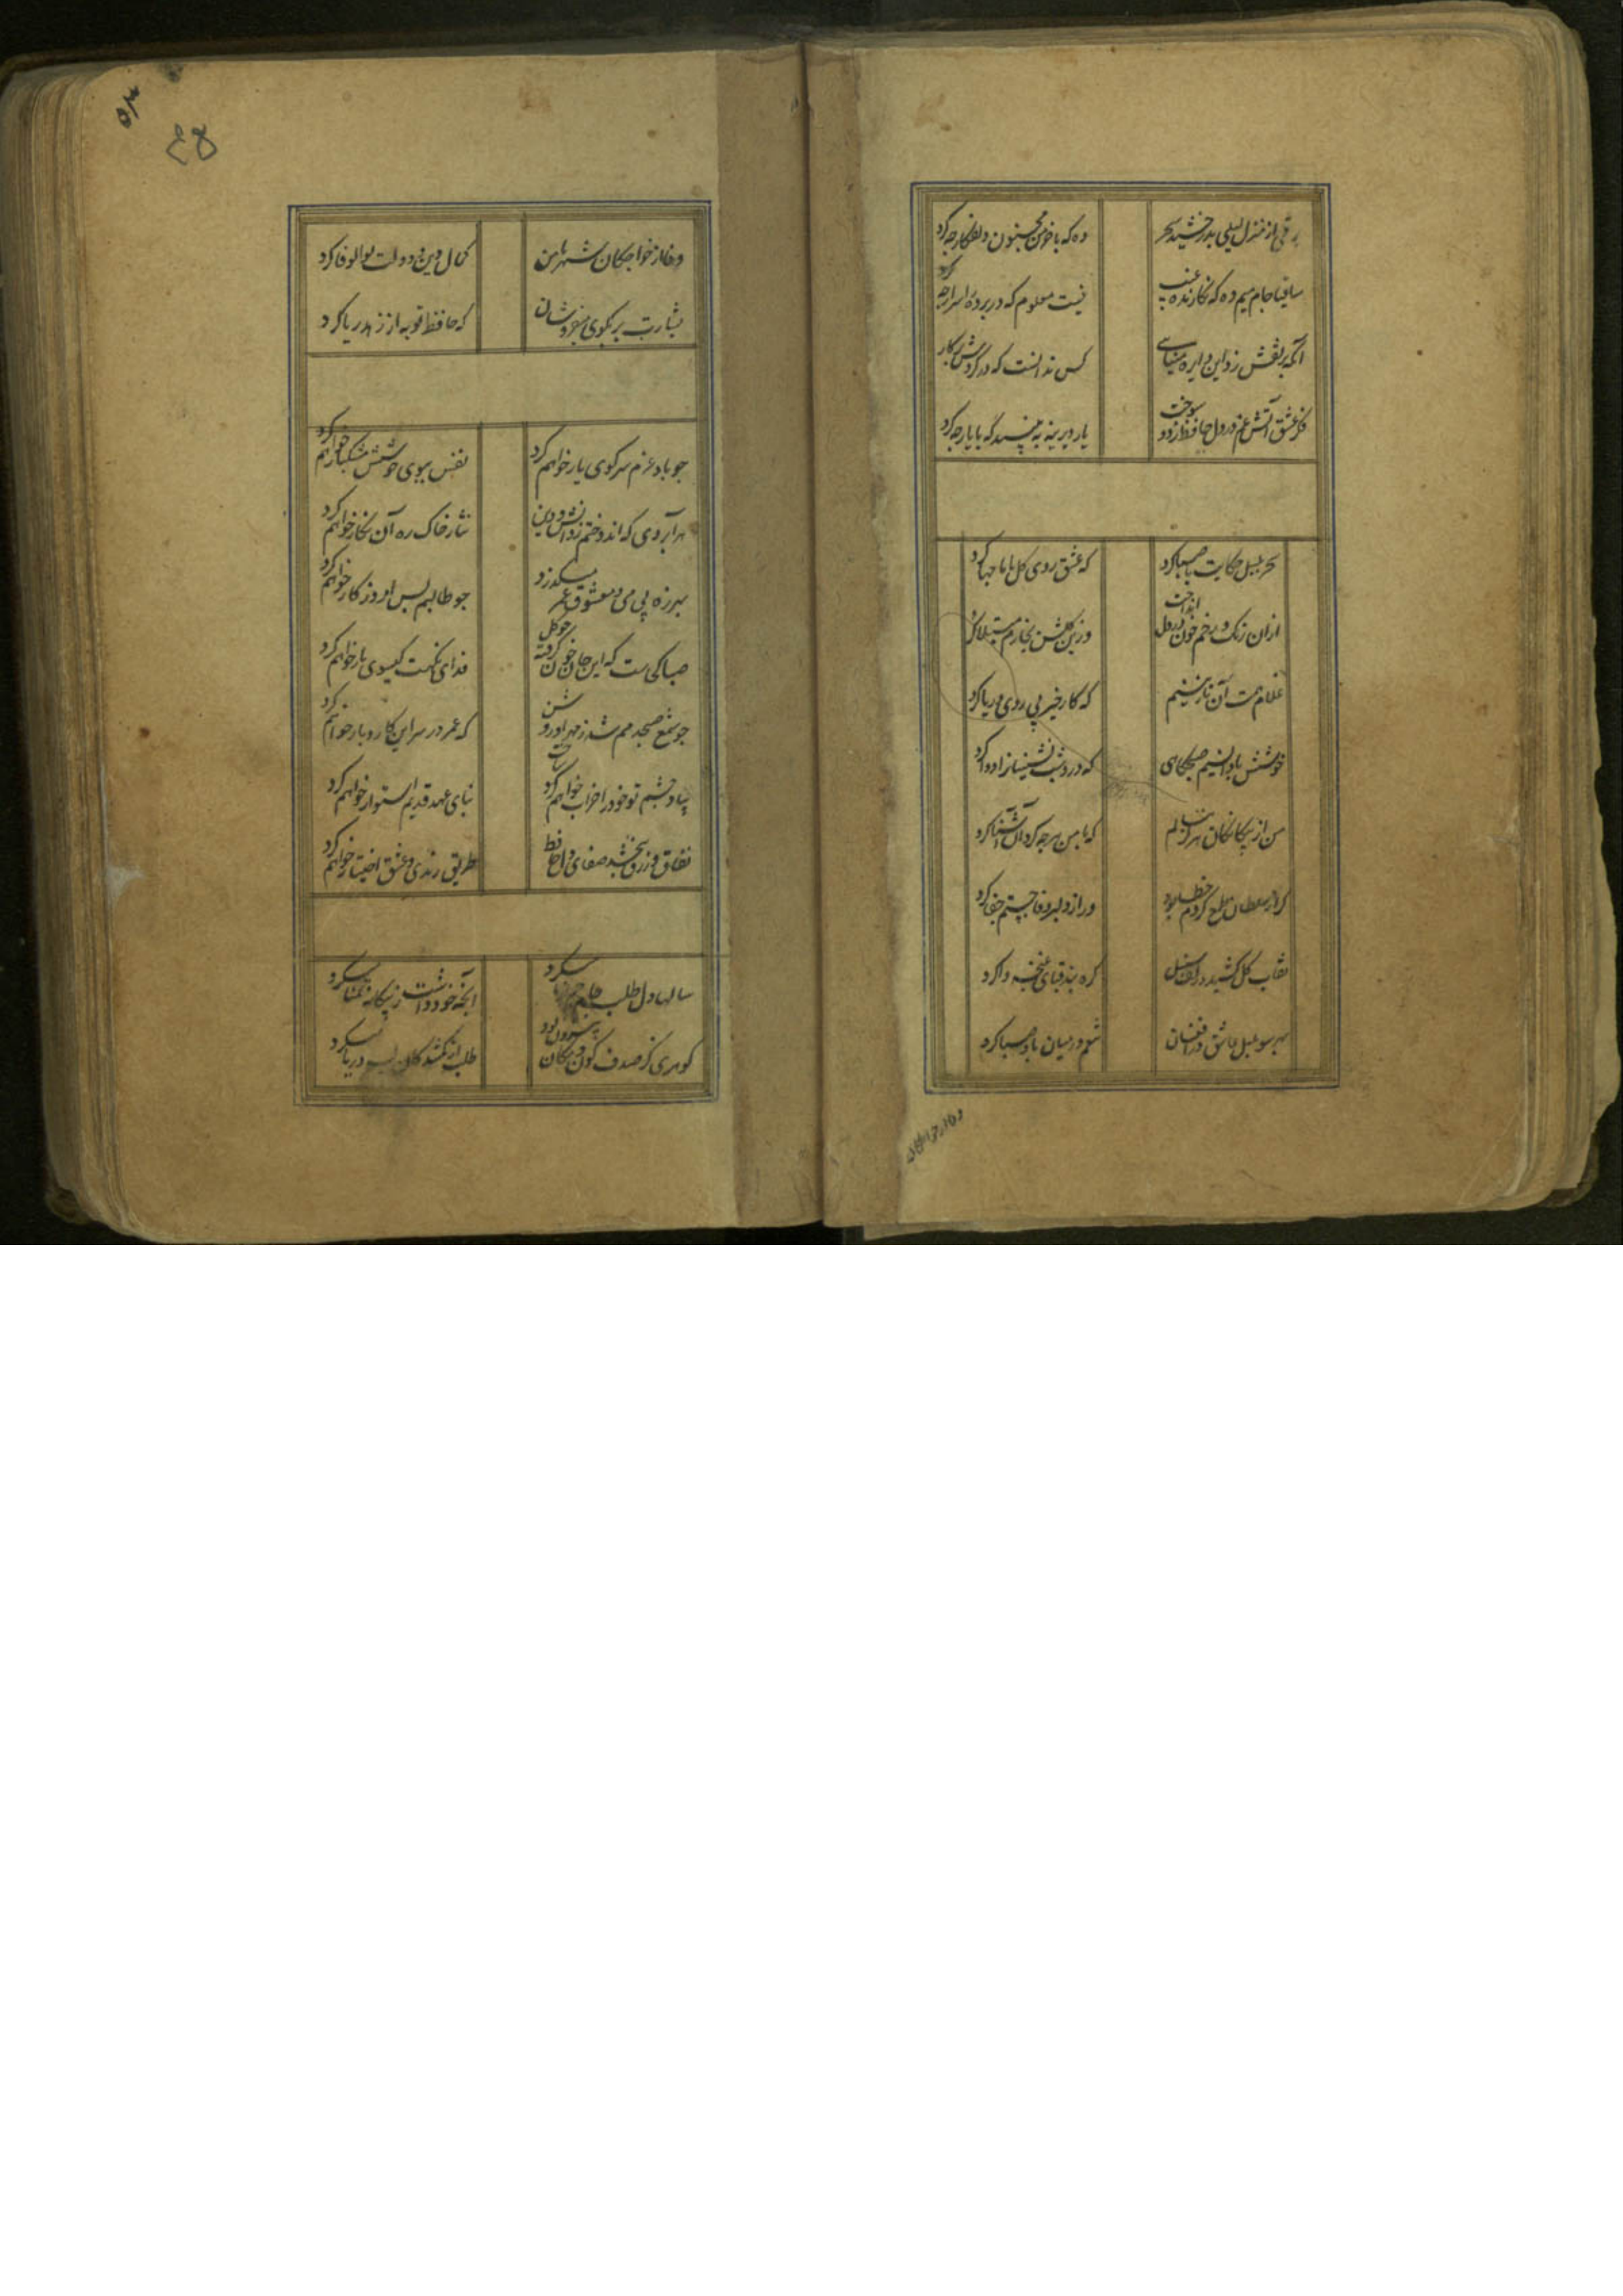 برقی از منزل لیلی بدرخشید سحر
وه که با خرمن مجنون دلفکار چه کرد
ساقیا جام میم ده که نکارنده غیب
نیست معلوم که در پرده اسرار چه کرد
آنکه پر نقش زد این دایره مینایی
کس ندانست که در کردش پرکار چه کرد
فکر عشق آتش غم در دل حافظ زد و سوخت
یار دیرینه ببینید که با یار چه کرد
سحر بلبل حکایت با صبا کرد
که عشق روی کل با ما چها کرد
ازان رنک رخم خون در دل انداخت
وزین کلشن بخارم مبتلا کرد
غلام همت آن نازنینم
که کار خیر بی روی و ریا کرد
خوشش باد آن نسیم صبحکاهی
که درد شب نشینانرا دوا کرد
من از بیکانکان هرکز ننالم
که با من هرچه کرد آن آشنا کرد
کر از سلطان طمع کردم خطا بود
ور از دلبر وفا جستم جفا کرد
نقاب کل کشید و زلف سنبل
کره بند قبای غنچه وا کرد
بهر سو بلبل عاشق در افغان
تنعم در میان باد صبا کرد
وفا از خواجکان
۵۳
وفا از خواجکان شهر با من
کمال دین و دولت بوالوفا کرد
بشارت بر بکوی میفروشان
که حافظ توبه از زهد ریا کرد
چو باد عزم سر کوی یار خواهم کرد
نفس ببوی خوشش مشکبار خواهم کرد
هر آبروی که اندوختم ز دانش و دین
نثار خاک ره آن نکار خواهم کرد
بهرزه بی می و معشوق عمر میکذرد
بطالتم بس از امروز کار خواهم کرد
صبا کجاست که این جان خون کرفته چو کل
فدای نکهت کیسوی یار خواهم کرد
چو شمع صبحدمم شد ز مهر او روشن
که عمر در سر این کار و بار خواهم کرد
بیاد چشم تو خود را خراب خواهم ساخت
بنای عهد قدیم استوار خواهم کرد
نفاق و زرق نبخشد صفای دل حافظ
طریق رندی و عشق اختیار خواهم کرد
سالها دل طلب جام جم از ما میکرد
آنچه خود داشت ز بیکانه تمنا میکرد
کوهری کز صدف کون و مکان بیرون بود
طلب از کمشدکان لب دریا میکرد